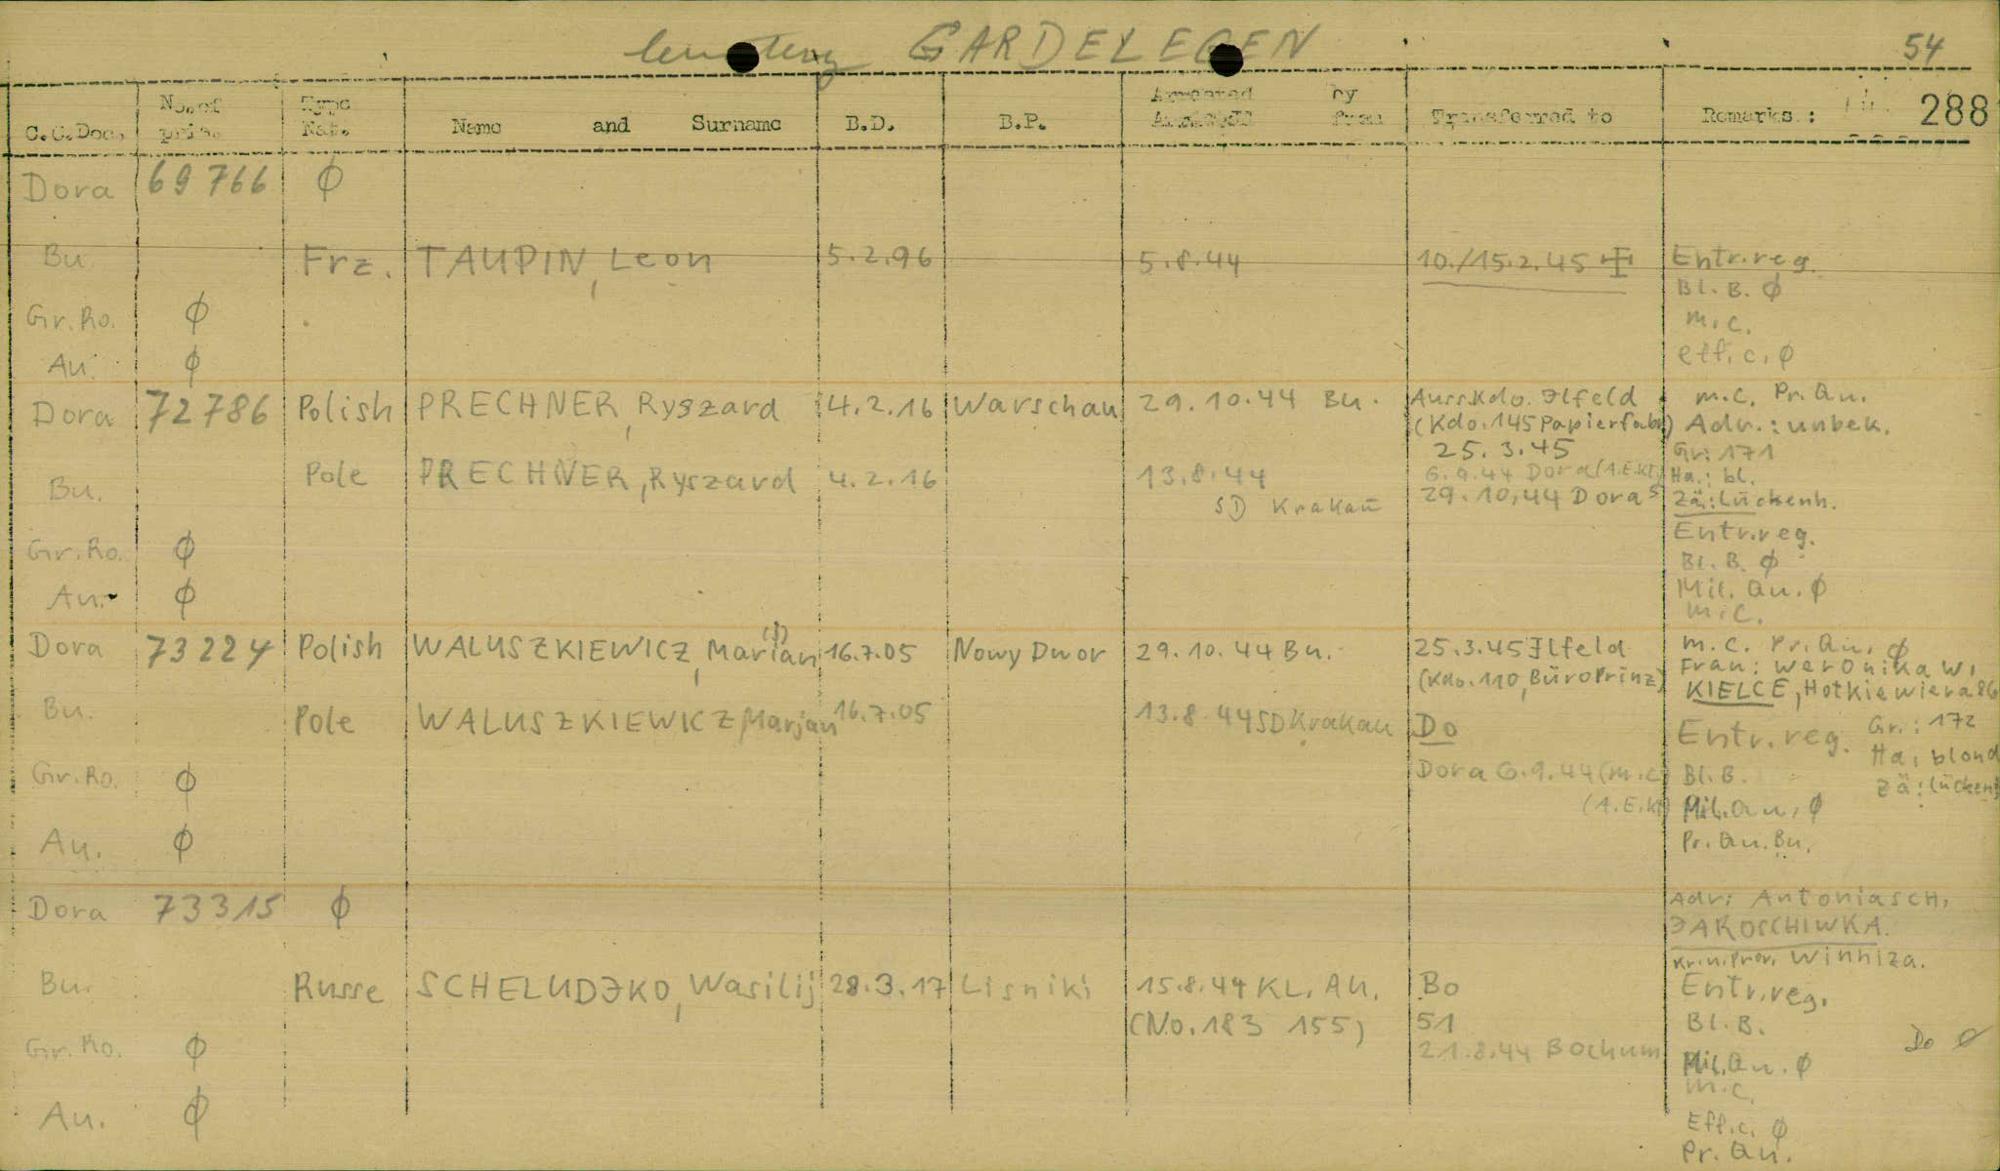 cemetery GARDELEGEN 54
C.C.Doc. No. of pris. Type Nat. Name and Surname B.D. B.P. Arrested by from Transferred to Remarks : 288
Dora 69766 Ø
Bu. Frz. TAUPIN, Leon 5.2.96 5.8.44 10./15.2.45 Entr.reg.
Bl. B. Ø
Gr. Ro. Ø m.c.
Au. Ø eff.c. Ø
Dora 72786 Polish PRECHNER, Ryszard 14.2.16 Warschau 29.10.44 Bu. Auss.Kdo. Ilfeld m.c. Pr.Qu.
(Kdo. 145 Papierfabr) Adr.: unbek.
25.3.45 Gr: 171
Bu. Pole PRECHNER, Ryszard 4.2.16 13.8.44 6.9.44 Dora (A.E.Kt) Ha.: bl.
SD Krakau 29.10.44 Dora Zä.: lückenh.
Entr.reg.
Gr. Ro. Ø Bl. B. Ø
Au. Ø Mil. Qu. Ø
m.c.
Dora 73224 Polish WALUSZKIEWICZ, Marian (j) 16.7.05 Nowy Dwor 29.10.44 Bu. 25.3.45 Ilfeld m.c. Pr.Qu. Ø
(Kdo. 110, Büro Prinz) Frau: Weronika W.
KIELCE, Hotkiewiera 86
Bu. Pole WALUSZKIEWICZ, Marjan 16.7.05 13.8.44 SD Krakau Do Entr.reg. Gr.: 172
Ha: blond
Gr. Ro. Ø Dora 6.9.44 (m.c) Bl. B. Zä: lücken
(A.E.Kt) Mil.Qu. Ø
Au. Ø Pr. Qu. Bu.
Dora 73315 Ø Adr: Antonia SCH.
JAROSCHIWKA.
Kr.u.Prov. Winniza.
Bu. Russe SCHELUDJKO, Wasilij 28.3.17 Lisniki 15.8.44 KL. Au. Bo Entr.reg.
(No. 183 155) 51 Bl. B.
Gr. Ro. Ø 21.8.44 Bochum Mil.Qu. Ø Do Ø
m.c.
Au. Ø Eff.c. Ø
Pr. Qu.